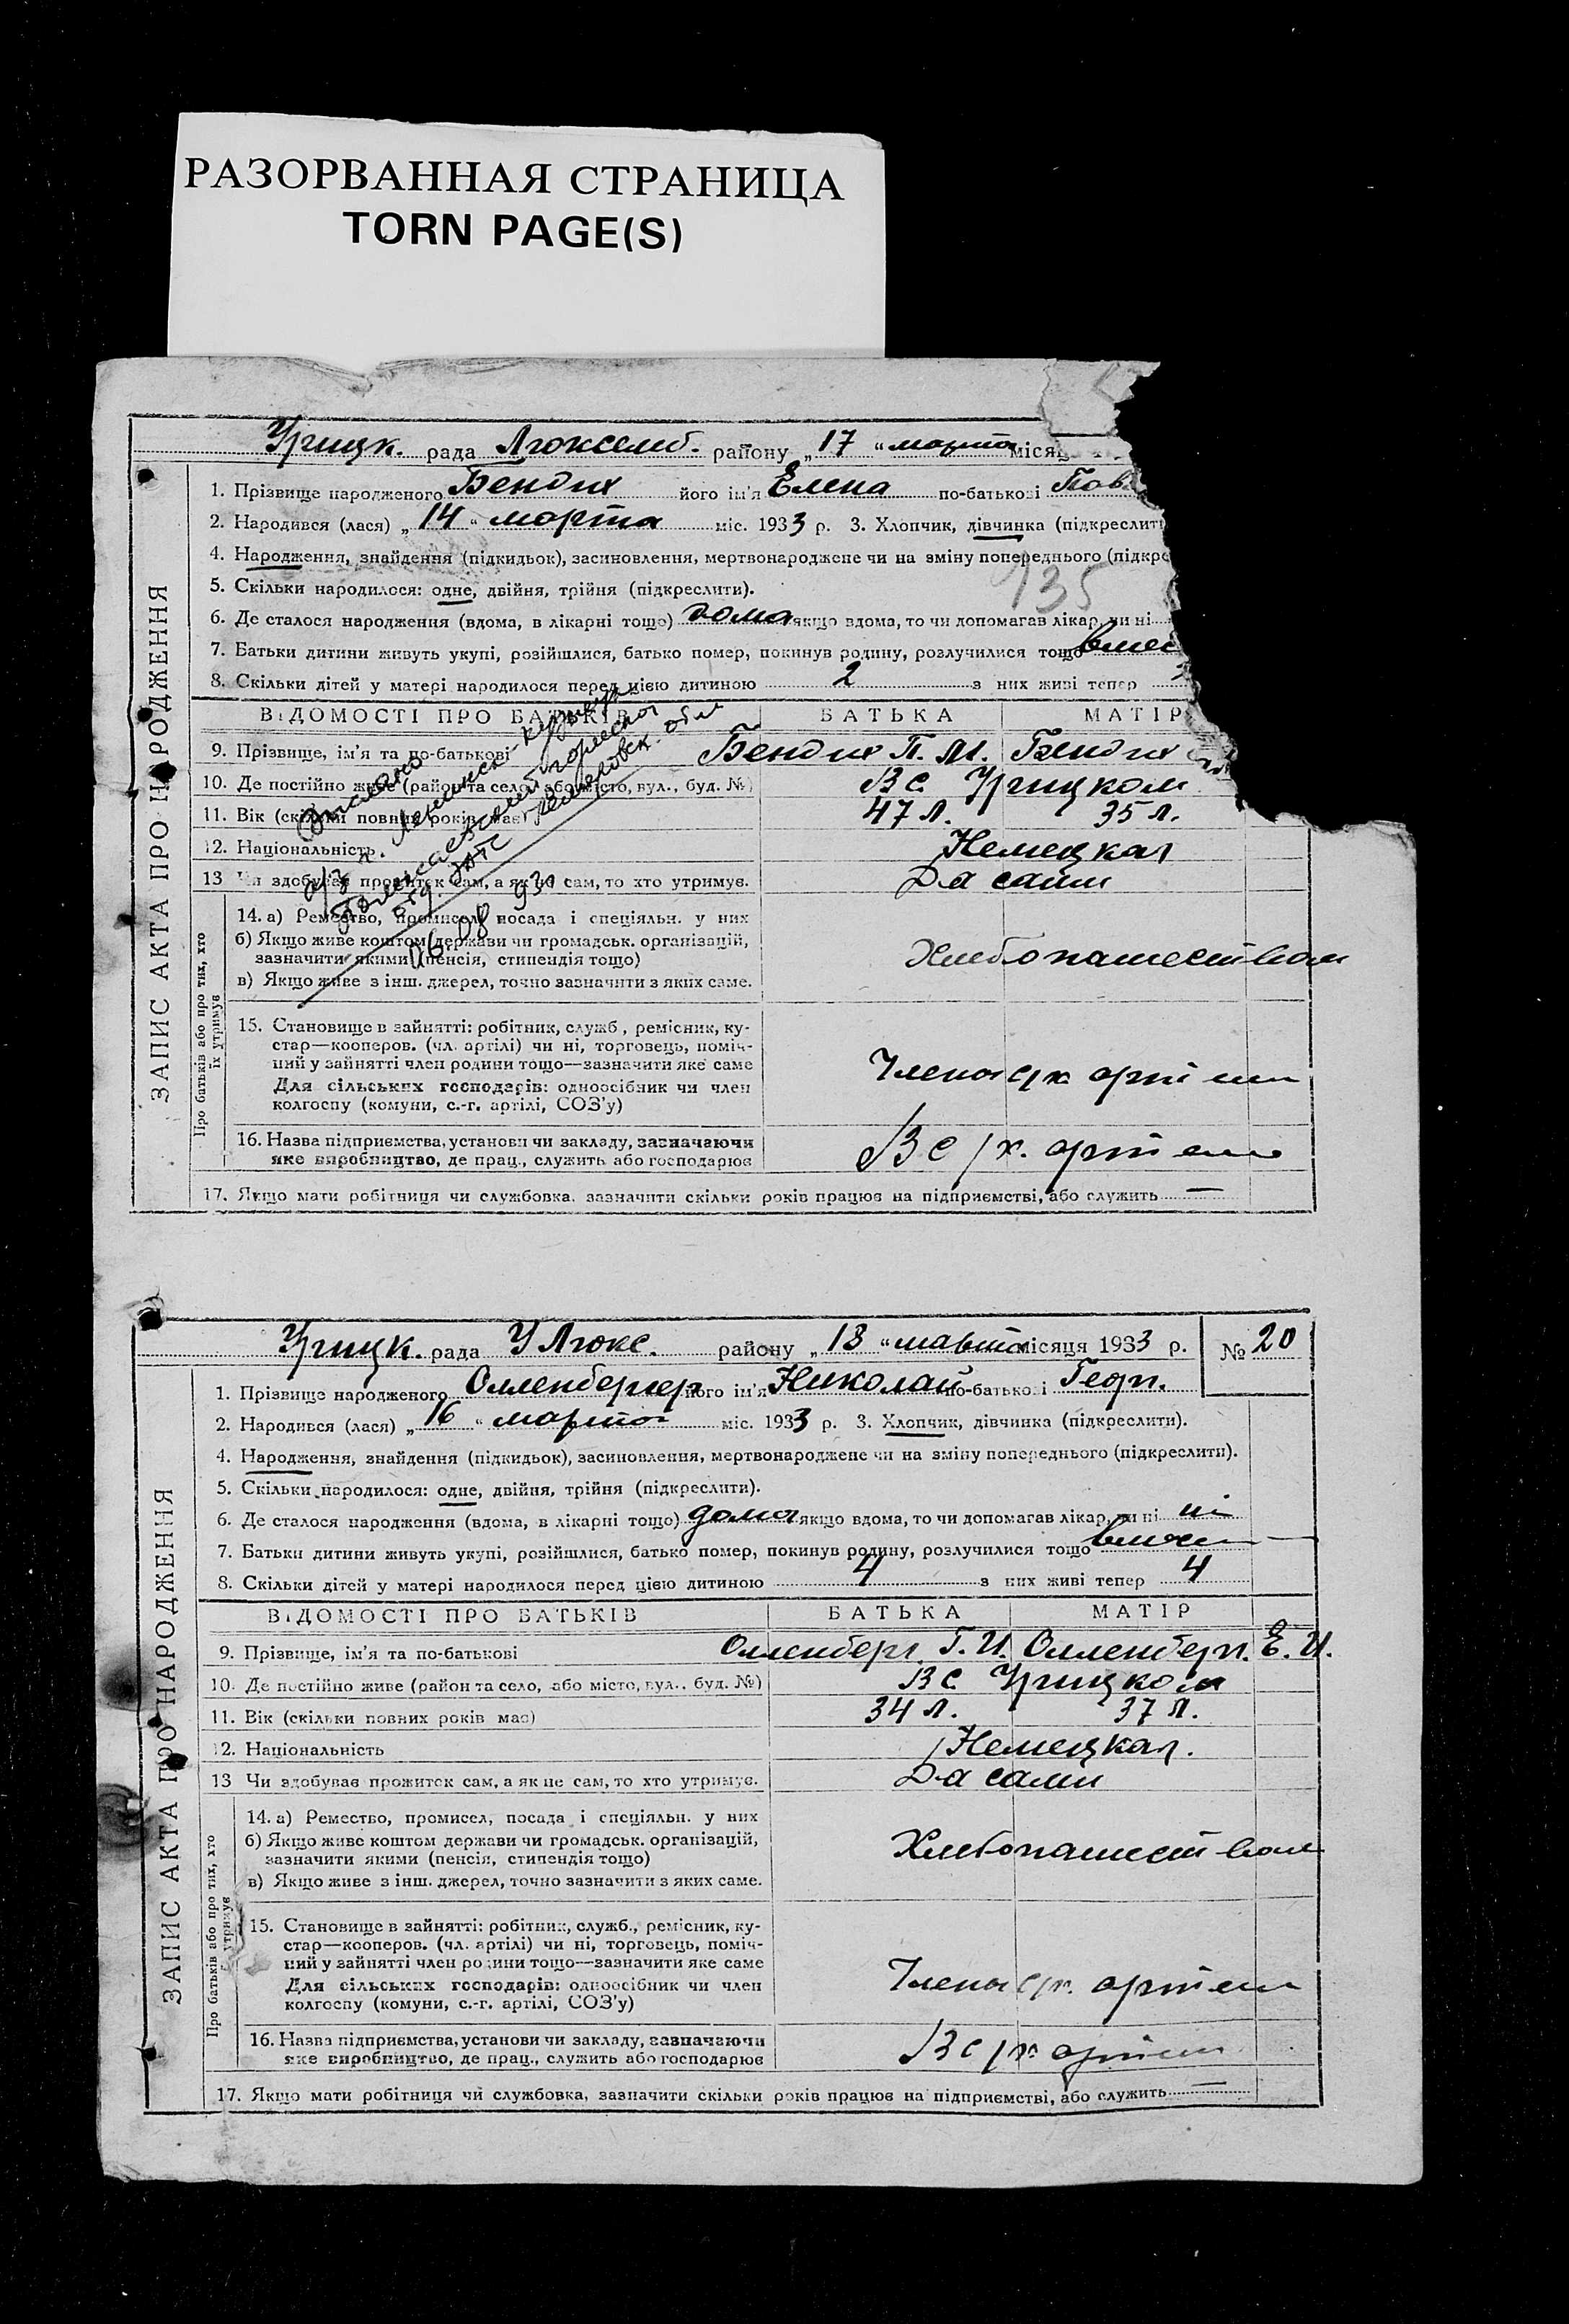 РАЗОРВАННАЯ СТРАНИЦА
TORN PAGE(S)
Урицк. рада Люксемб. району „17“ марта місяц
1. Прізвище народженого Бендих його ім'я Елена по-батькові Пав
2. Народився (лася) „14“ марта міс. 1933 р. 3. Хлопчик, дівчинка (підкреслити
4. Народження, знайдення (підкидьок), засиновлення, мертвонароджене чи на зміну попереднього (підкре
135
5. Скільки народилося: одне, двійня, трійня (підкреслити).
6. Де сталося народження (вдома, в лікарні тощо) дома якщо вдома, то чи допомагав лікар, чи ні
7. Батьки дитини живуть укупі, розійшлися, батько помер, покинув родину, розлучилися тощо вмес
8. Скільки дітей у матері народилося перед цією дитиною 2 з них живі тепер
ВІДОМОСТІ ПРО БАТЬКІВ БАТЬКА МАТІР
9. Прізвище, ім'я та по-батькові Бендих П. М. Бендих
10. Де постійно живе (район та село, або місто, вул., буд. №) В с Урицком
11. Вік (скільки повних років має) 47 л. 35 л.
12. Національність Немецкая
13 Чи здобуває прожиток сам, а як не сам, то хто утримує. Да сами
14. а) Ремество, промисел, посада і спеціяльн. у них
б) Якщо живе коштом держави чи громадськ. організацій,
зазначити якими (пенсія, стипендія тощо)
Хлебопашеством
в) Якщо живе з інш. джерел, точно зазначити з яких саме.
15. Становище в зайнятті: робітник, служб, ремісник, ку-
стар—кооперов. (чл. артілі) чи ні, торговець, поміч-
ний у зайнятті член родини тощо—зазначити яке саме
Для сільських господарів: одноосібник чи член
колгоспу (комуни, с.-г. артілі, СОЗ'у)
Члены с/х артели
16. Назва підприємства, установи чи закладу, зазначаючи
яке виробництво, де прац., служить або господарює
В с/х. артели
17. Якщо мати робітниця чи службовка, зазначити скільки років працює на підприємстві, або служить —
ЗАПИС АКТА ПРО НАРОДЖЕННЯ
Про батьків або про тих, хто
їх утримує
Урицк. рада У Люкс. району „18“ марта місяця 1933 р. № 20
1. Прізвище народженого Олленбергер його ім'я Николай по-батькові Георг.
2. Народився (лася) „16“ марта міс. 1933 р. 3. Хлопчик, дівчинка (підкреслити).
4. Народження, знайдення (підкидьок), засиновлення, мертвонароджене чи на зміну попереднього (підкреслити).
5. Скільки народилося: одне, двійня, трійня (підкреслити).
6. Де сталося народження (вдома, в лікарні тощо) дома якщо вдома, то чи допомагав лікар, чи ні ні
7. Батьки дитини живуть укупі, розійшлися, батько помер, покинув родину, розлучилися тощо
8. Скільки дітей у матері народилося перед цією дитиною 4 з них живі тепер 4
ВІДОМОСТІ ПРО БАТЬКІВ БАТЬКА МАТІР
9. Прізвище, ім'я та по-батькові Олленберг. Г. И. Олленберг. Е. И.
10. Де постійно живе (район та село, або місто, вул., буд. №) В с Урицком
11. Вік (скільки повних років має) 34 л. 37 л.
12. Національність Немецкая.
13 Чи здобуває прожиток сам, а як не сам, то хто утримує. Да сами
14. а) Ремество, промисел, посада і спеціяльн. у них
б) Якщо живе коштом держави чи громадськ. організацій,
зазначити якими (пенсія, стипендія тощо)
Хлебопашеством
в) Якщо живе з інш. джерел, точно зазначити з яких саме.
15. Становище в зайнятті: робітник, служб., ремісник, ку-
стар—кооперов. (чл. артілі) чи ні, торговець, поміч-
ний у зайнятті член родини тощо—зазначити яке саме
Для сільських господарів: одноосібник чи член
колгоспу (комуни, с.-г. артілі, СОЗ'у)
Члены с/х. артели
16. Назва підприємства, установи чи закладу, зазначаючи
яке виробництво, де прац., служить або господарює
В с/х артели
17. Якщо мати робітниця чи службовка, зазначити скільки років працює на підприємстві, або служить —
ЗАПИС АКТА ПРО НАРОДЖЕННЯ
Про батьків або про тих, хто
утримує